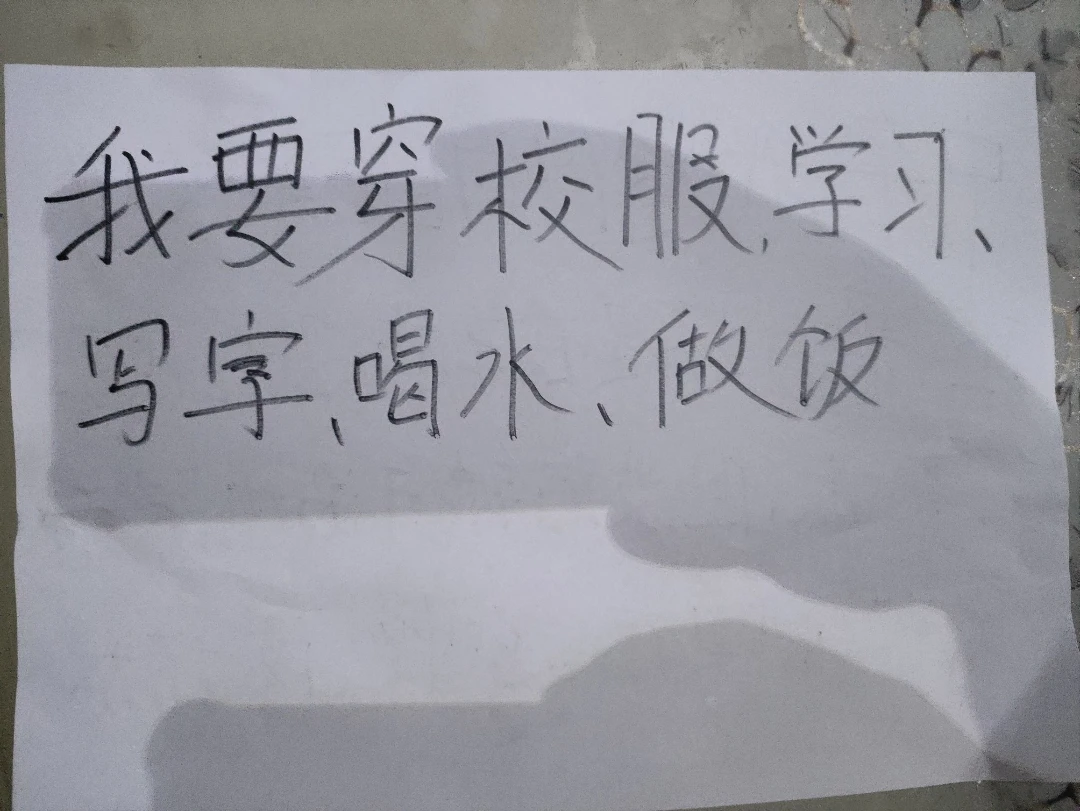 我要穿校服、学习、
写字、喝水、做饭